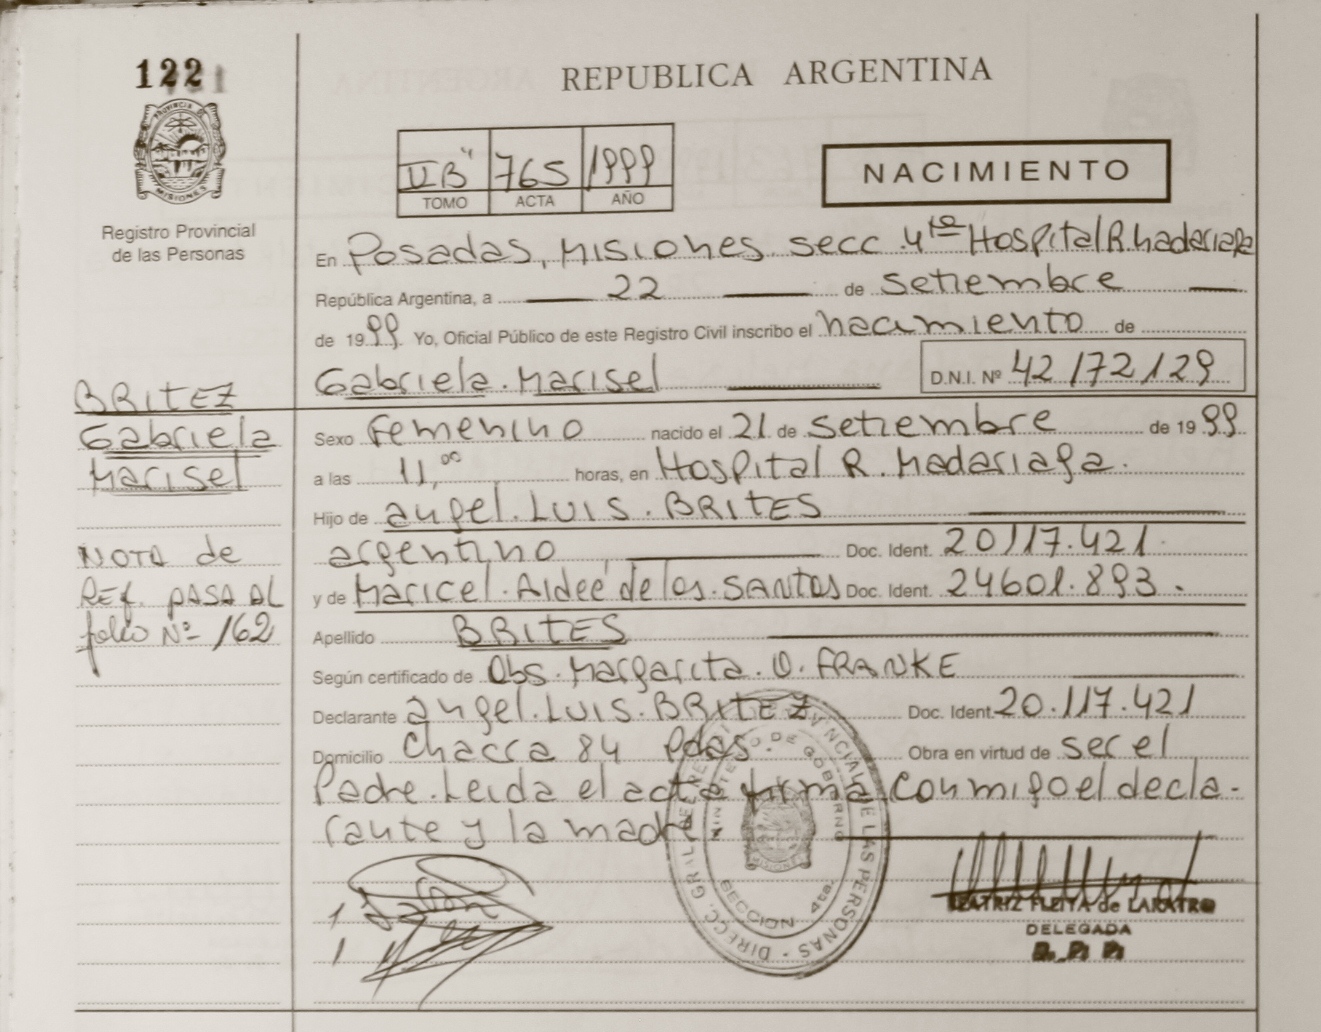 122
REPUBLICA ARGENTINA
PROVINCIA DE
MISIONES
Registro Provincial
de las Personas
II "B" 765 1999
TOMO ACTA AÑO
NACIMIENTO
En Posadas, Misiones secc 4ta Hospital R. Madariaga
República Argentina, a 22 de setiembre
de 1999 Yo, Oficial Público de este Registro Civil inscribo el nacimiento de
Gabriela Marisel D.N.I. Nº 42172129
BRITEZ
Gabriela
Marisel
NOTA de
REf. PASA AL
folio Nº 162
Sexo Femenino nacido el 21 de setiembre de 1999
a las 11,00 horas, en Hospital R. Madariaga.
Hijo de angel. LUIS. BRITES
argentino Doc. Ident. 20117.421.
y de Maricel. Aideé de los. SANTOS Doc. Ident. 24601.893.
Apellido BRITES
Según certificado de Obs. Margarita. O. FRANKE
Declarante angel. LUIS. BRITEZ Doc. Ident. 20.117.421
Domicilio Chacra 84 Pdas. Obra en virtud de ser el
Padre. Leida el acta firma conmigo el decla-
rante y la madre
MINISTERIO DE GOBIERNO
MISIONES
SECCION 4ta.
DE LAS PERSONAS - DIRECC. GRAL.
BEATRIZ FLEITA de LABATRO
DELEGADA